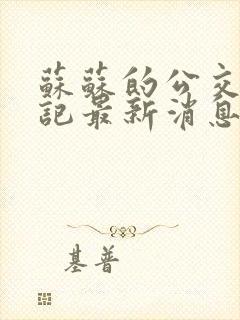 蘇蘇的公交
記最新消息
基普